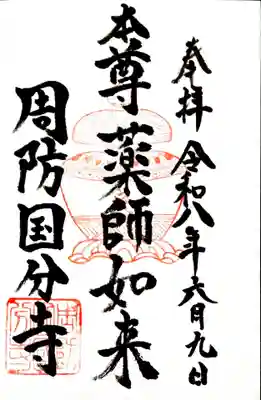 奉拝 令和八年六月九日
本尊薬師如来
周防国分寺